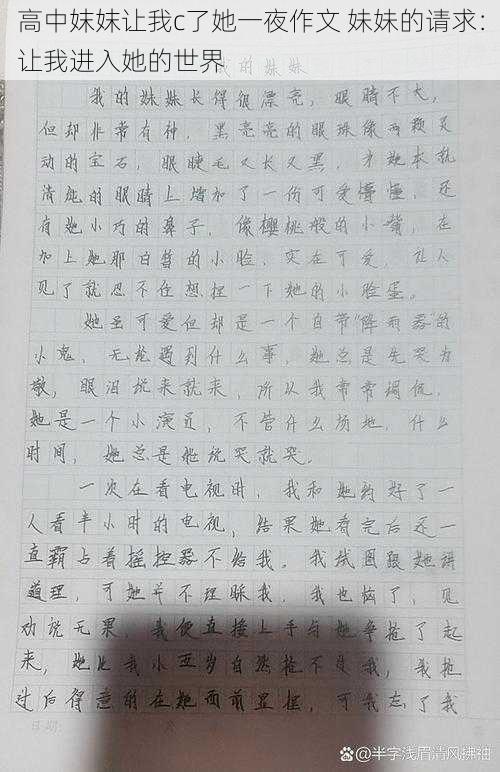 高中妹妹让我c了她一夜作文 妹妹的请求：
让我进入她的世界
我的妹妹
我的妹妹长得很漂亮，眼睛不大，
但却非常有神，黑亮亮的眼珠像两颗灵
动的宝石，眼睫毛又长又黑，为她本就
清纯的眼睛上增加了一份可爱懵懂，还
有她小巧的鼻子，像樱桃般的小嘴，在
加上她那白皙的小脸，实在可爱，让人
见了就忍不住想捏一下她的小脸蛋。
她虽可爱但却是一个自带“降雨器”的
小鬼，无论遇到什么事，她总是先哭为
敬，眼泪说来就来，所以我常常调侃，
她是一个小演员，不管什么场地，什么
时间，她总是她说哭就哭。
一次在看电视时，我和她约好了一
人看半小时的电视，结果她看完后还一
直霸占着摇控器不给我。我试图跟她讲
道理，可她并不理睬我，我也恼了，见
劝说无果，我便直接上手与她争抢了起
来，她比我小五岁自然抢不过我，我抢
过后得意的在她面前显摆，可我忘了我
日期：
@半字浅眉清风拂袖